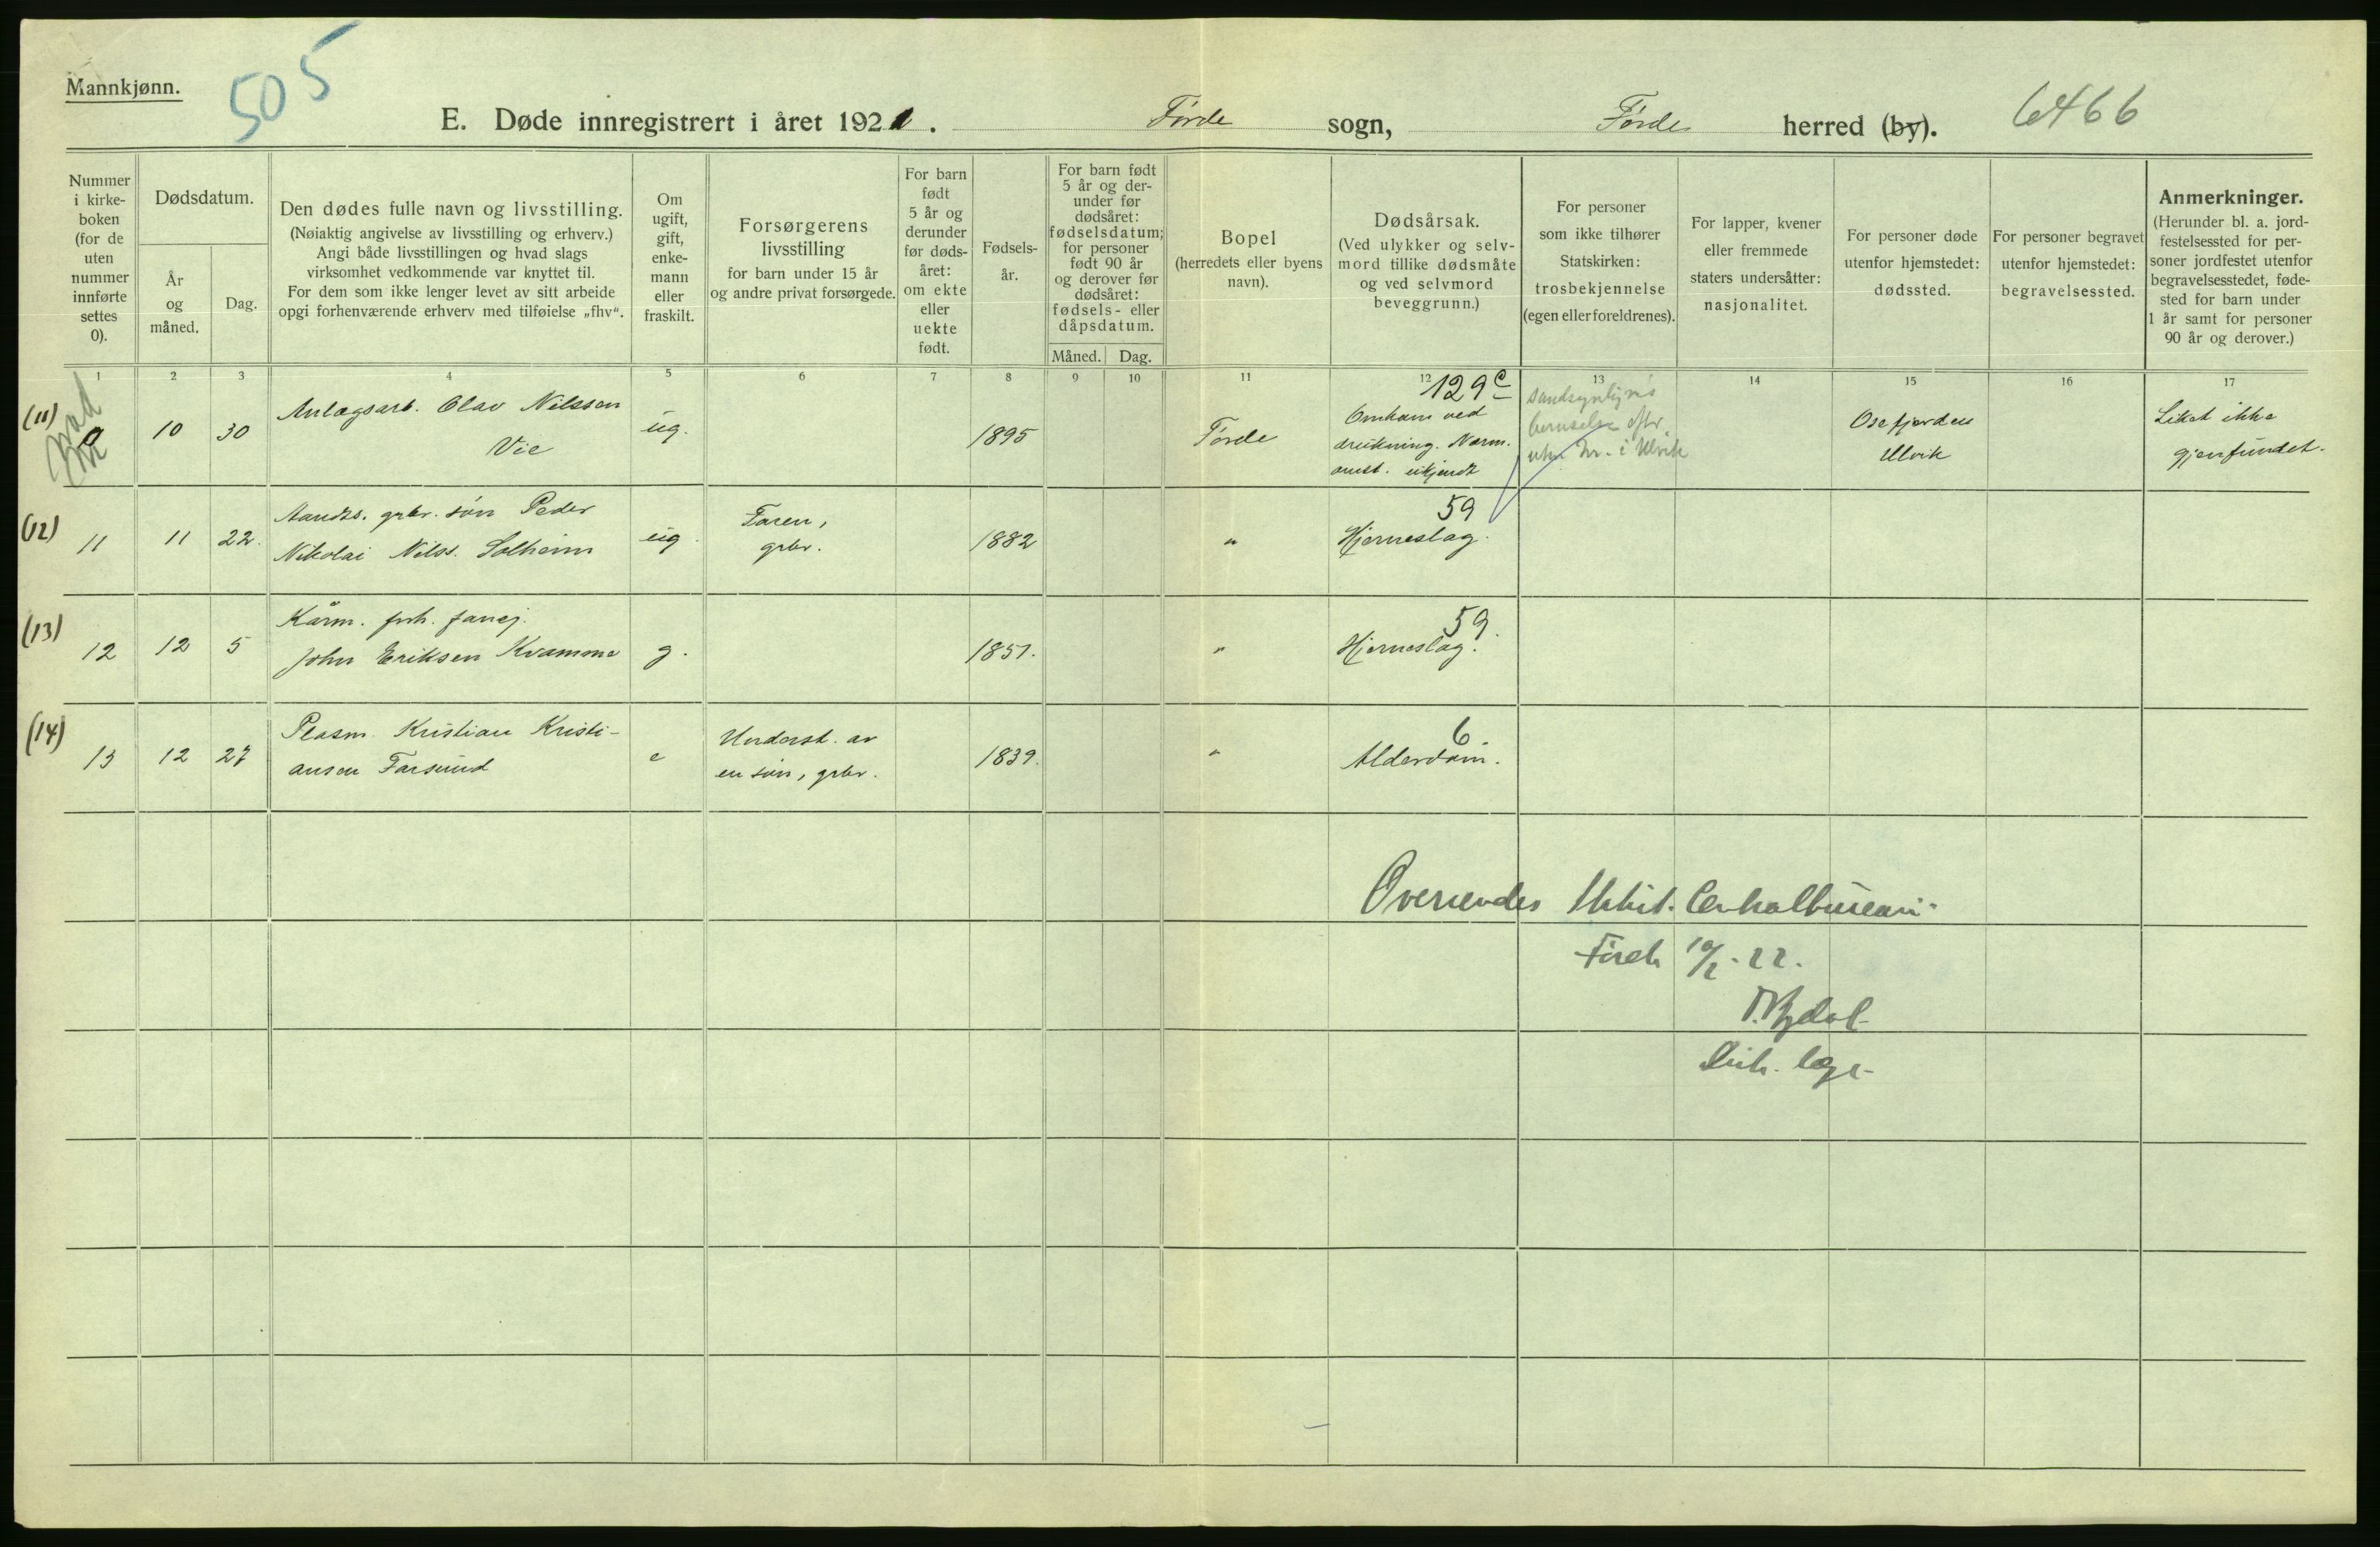 Mannkjønn.
505
E. Døde innregistrert i året 1921.
Førde sogn,
Førde herred (by).
6466
Nummer
i kirke-
boken
(for de
uten
nummer
innførte
settes
0).
Dødsdatum.
År
og
måned.
Dag.
Den dødes fulle navn og livsstilling.
(Nøiaktig angivelse av livsstilling og erhverv.)
Angi både livsstillingen og hvad slags
virksomhet vedkommende var knyttet til.
For dem som ikke lenger levet av sitt arbeide
opgi forhenværende erhverv med tilføielse „fhv“.
Om
ugift,
gift,
enke-
mann
eller
fraskilt.
Forsørgerens
livsstilling
for barn under 15 år
og andre privat forsørgede.
For barn
født
5 år og
derunder
før døds-
året:
om ekte
eller
uekte
født.
Fødsels-
år.
For barn født
5 år og der-
under før
dødsåret:
fødselsdatum;
for personer
født 90 år
og derover før
dødsåret:
fødsels- eller
dåpsdatum.
Måned. Dag.
Bopel
(herredets eller byens
navn).
Dødsårsak.
(Ved ulykker og selv-
mord tillike dødsmåte
og ved selvmord
beveggrunn.)
For personer
som ikke tilhører
Statskirken:
trosbekjennelse
(egen eller foreldrenes).
For lapper, kvener
eller fremmede
staters undersåtter:
nasjonalitet.
For personer døde
utenfor hjemstedet:
dødssted.
For personer begravet
utenfor hjemstedet:
begravelsessted.
Anmerkninger.
(Herunder bl. a. jord-
festelsessted for per-
soner jordfestet utenfor
begravelsesstedet, føde-
sted for barn under
1 år samt for personer
90 år og derover.)
1 2 3 4 5 6 7 8 9 10 11 12 13 14 15 16 17
(11)
10 30
Anlægsarb. Olav Nilssen
Vie
ug.
1895
Førde
129c
Omkom ved
drukning. Nærm.
omst. ukjendt
sandsynligvis
beruselse eftr.
i Ulvik
Osefjorden
Ulvik
Liket ikke
gjenfundet.
(12)
11 11 22.
Aandss. grbr. søn Peder
Nikolai Nilss. Solheim
ug.
Faren,
grbr.
1882
"
59
Hjerneslag.
(13)
12 12 5
Kårm. forh.
John Eriksen Kvamme
g.
1851.
"
59.
Hjerneslag.
(14)
13 12 27
Plasm. Kristian Kristi-
ansen Farsund
e
Underst. av
en søn, grbr.
1839.
"
6
Alderdom.
Oversendes Statist. Centralbureau.
Førde 10/2-22.
Distr. læge